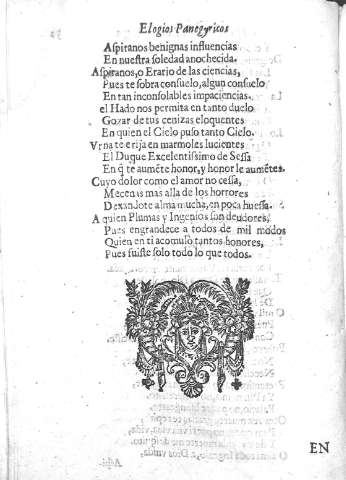 Elogios Panegyricos
Aspiranos benignas influencias
En nuestra soledad anochecida.
Aspiranos, o Erario de las ciencias,
Pues te sobra consuelo, algun consuelo
En tan inconsolables impaciencias,
el Hado nos permita en tanto duelo
Gozar de tus cenizas eloquentes
En quien el Cielo puso tanto Cielo.
Vrna te erija en marmoles lucientes
El Duque Excelentissimo de Sessa
En q̃ te aumẽte honor, y honor le aumẽtes.
Cuyo dolor como el amor no cessa,
Mecenas mas alla de los horrores
Dexandote alma mucha, en poca huessa.
A quien Plumas y Ingenios son deudores,
Pues engrandece a todos de mil modos
Quien en ti acomulo tantos honores,
Pues fuiste solo todo lo que todos.
EN